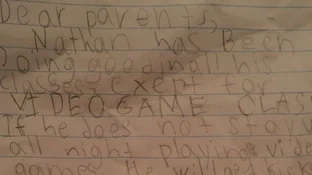 Dear parents,
Nathan has Been
Doing good in all his
classes, exept for
VIDEOGAME CLAS
If he does not stay u
all night playing vide
games He will get kick